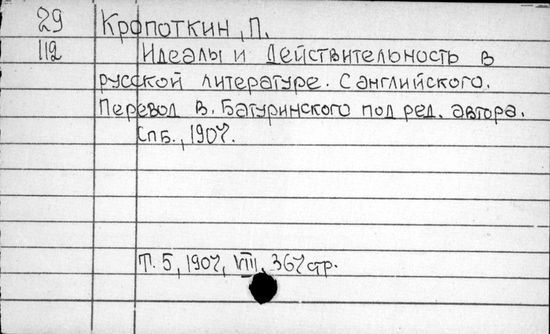 29 Кропоткин, П.
112 Идеалы и действительность в
русской литературе. С английского.
Перевод В. Батуринского под ред. автора.
Спб., 1907.
Т. 5, 1907, VIII, 367 стр.